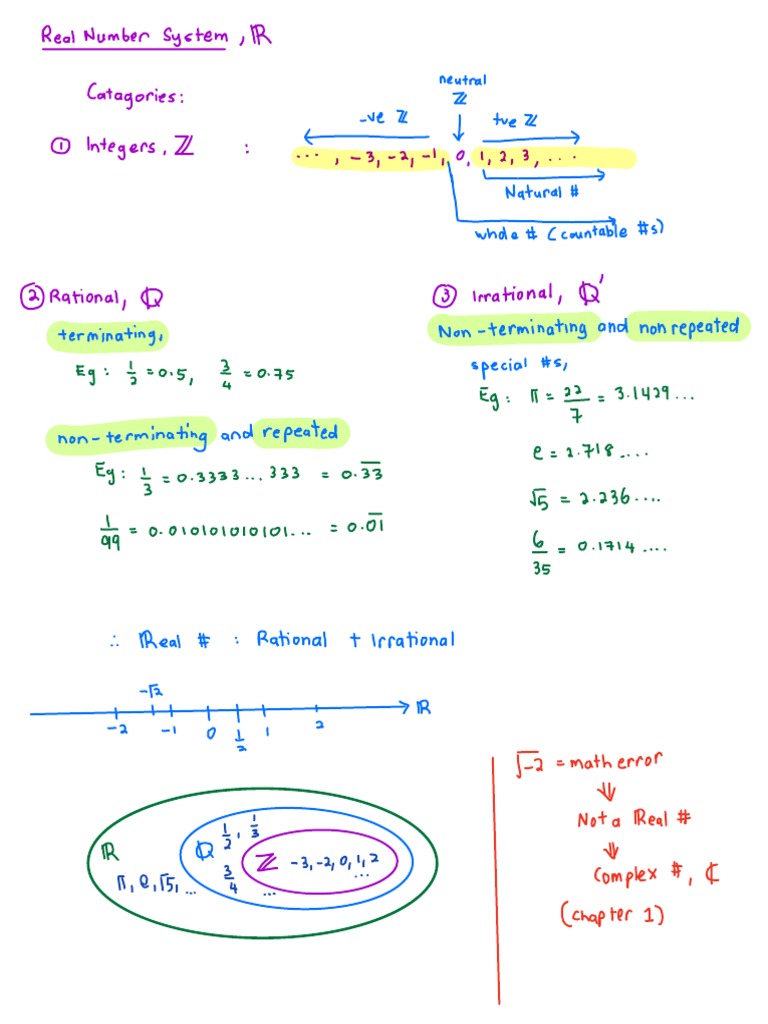 Real Number System, ℝ
Catagories:
neutral
ℤ
-ve ℤ
+ve ℤ
① Integers, ℤ : ..., -3, -2, -1, 0, 1, 2, 3, ...
Natural #
whole # (countable #s)
② Rational, ℚ
terminating,
Eg: 1/2 = 0.5, 3/4 = 0.75
non-terminating and repeated
Eg: 1/3 = 0.3333...333 = 0.3̅3̅
1/99 = 0.010101010101... = 0.0̅1̅
③ Irrational, ℚ'
Non-terminating and nonrepeated
special #s,
Eg: π = 22/7 = 3.1429...
e = 2.718....
√5 = 2.236....
6/35 = 0.1714....
∴ ℝeal # : Rational + Irrational
-√2
-2 -1 0 1/2 1 2 ℝ
ℝ
π, e, √5, ...
ℚ 1/2, 1/3
3/4 ...
ℤ -3, -2, 0, 1, 2
...
√-2 = math error
⇓
Not a ℝeal #
⇓
Complex #, ℂ
(chapter 1)